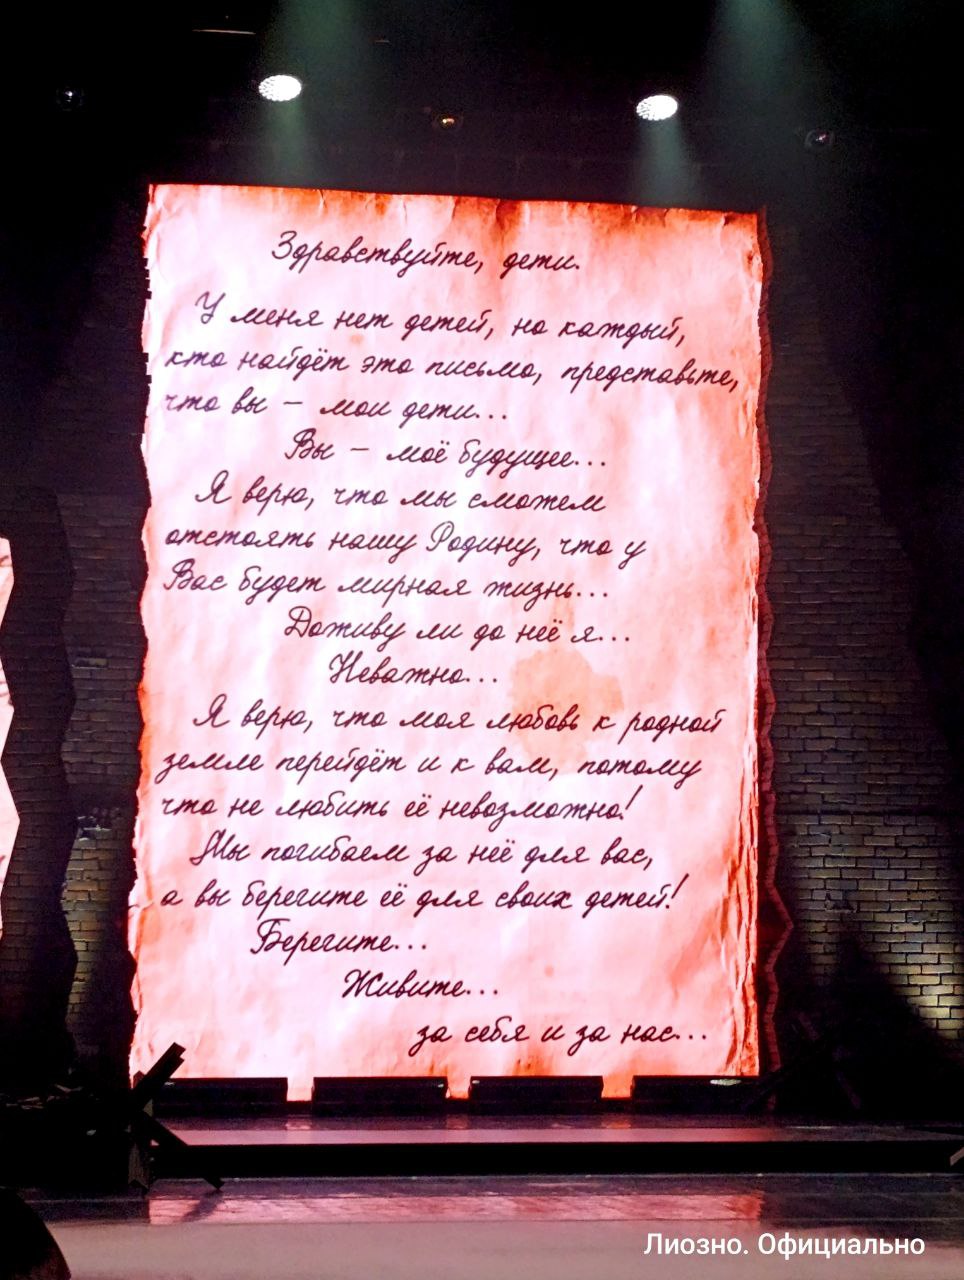 Здравствуйте, дети.
У меня нет детей, но каждый,
кто найдёт это письмо, представьте,
что вы – мои дети...
Вы – моё будущее...
Я верю, что мы сможем
отстоять нашу Родину, что у
Вас будет мирная жизнь...
Доживу ли до неё я...
Неважно...
Я верю, что моя любовь к родной
земле перейдёт и к вам, потому
что не любить её невозможно!
Мы погибаем за неё для вас,
а вы берегите её для своих детей!
Берегите...
Живите...
за себя и за нас...
Лиозно. Официально